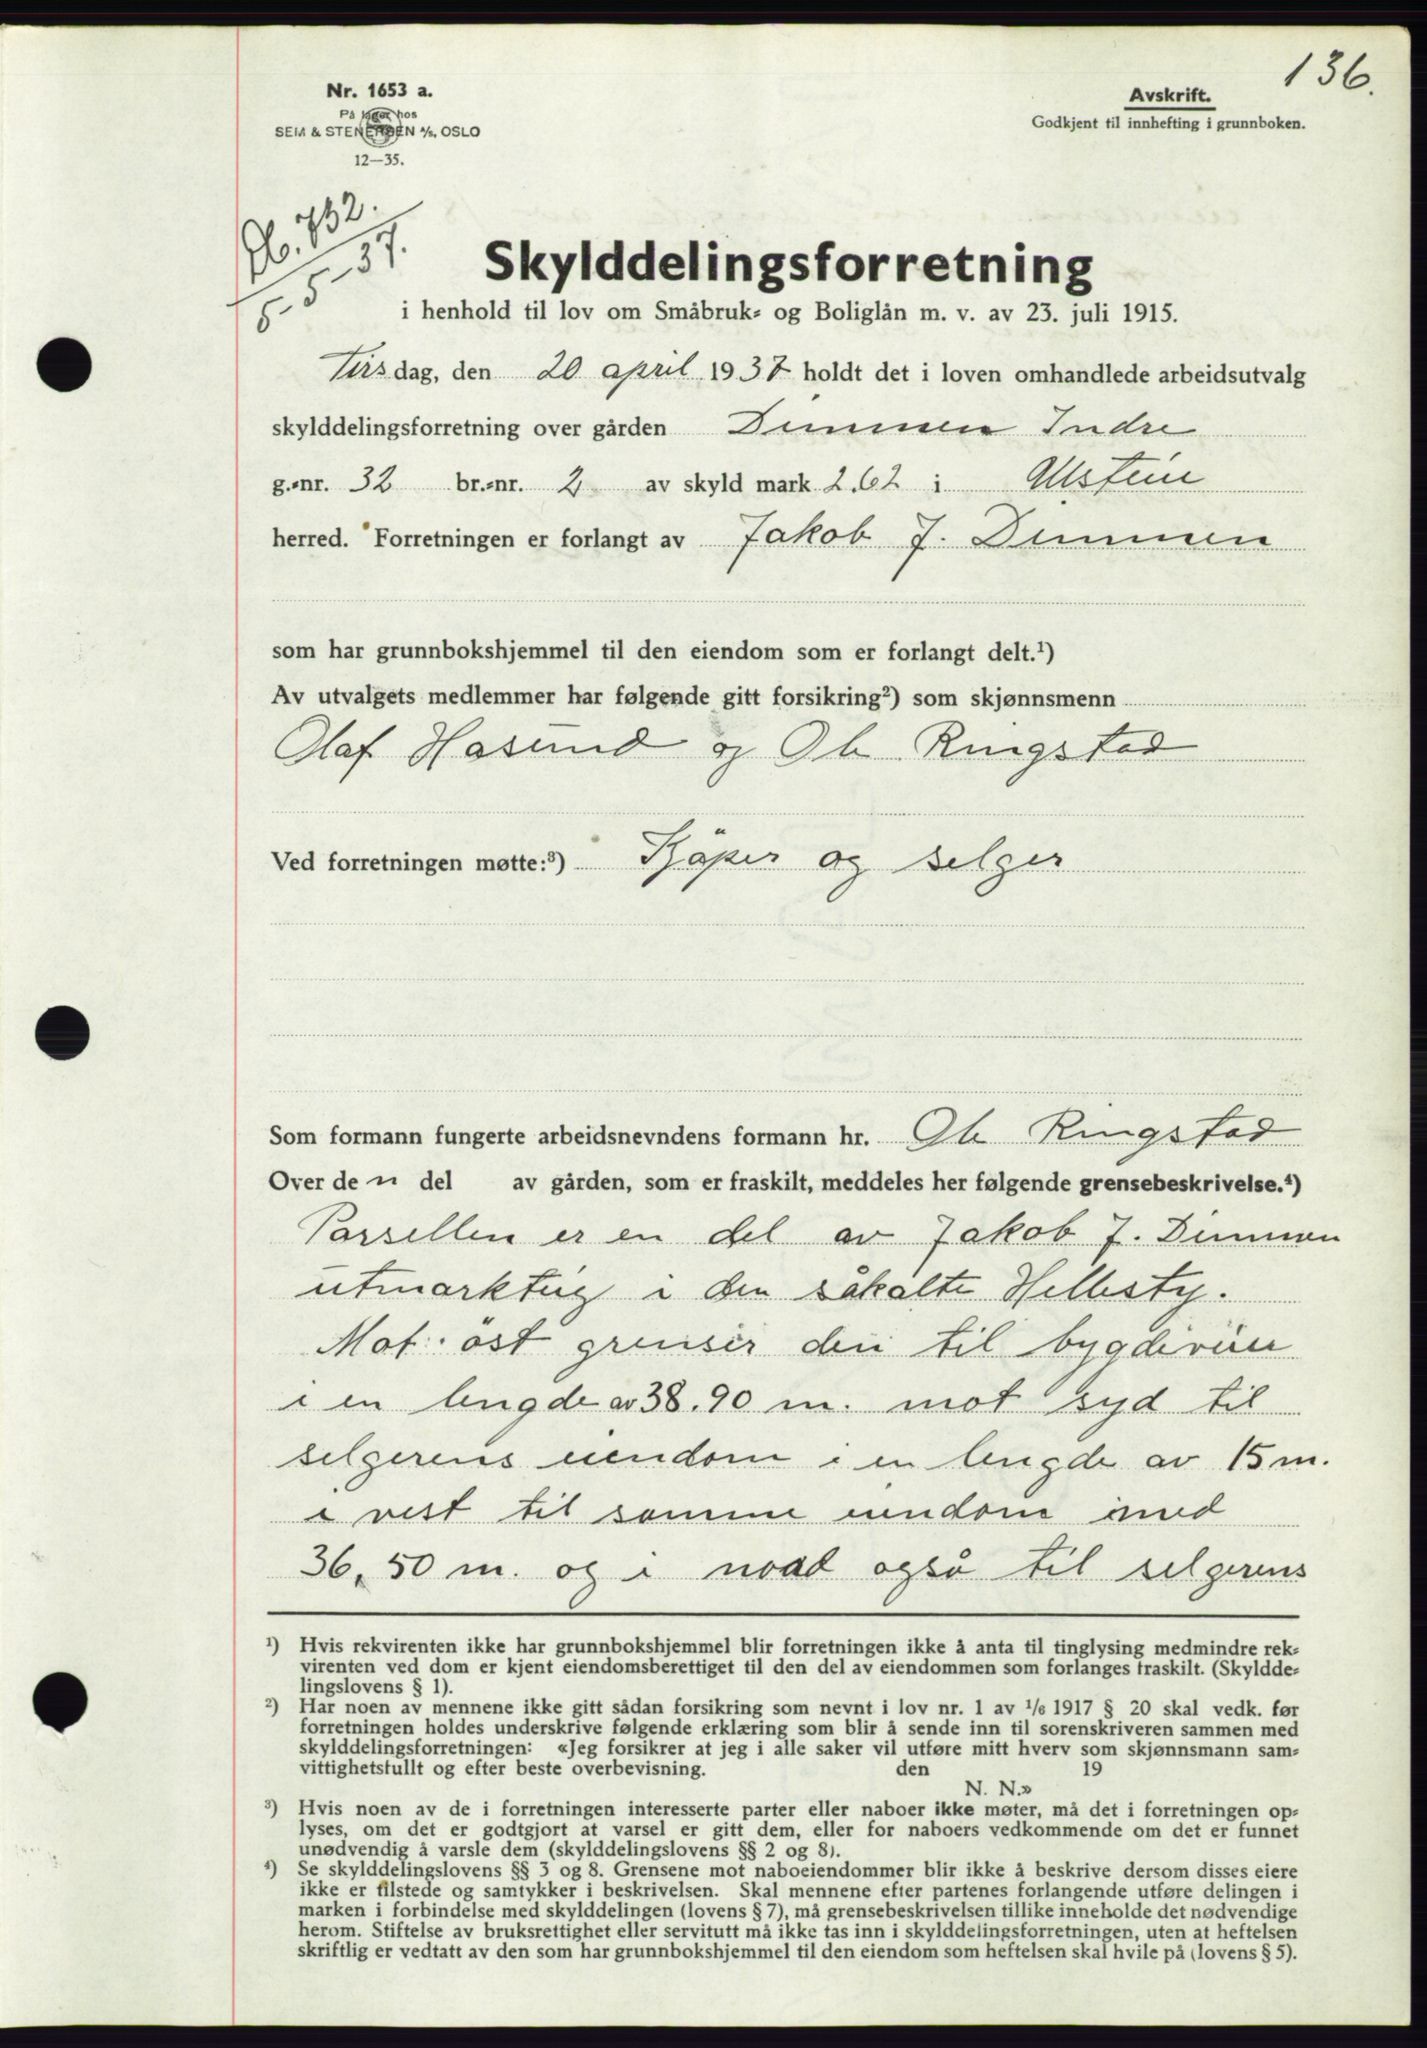 136.
Nr. 1653 a.
På lager hos
SEM & STENERSEN A/S, OSLO
12—35.
Avskrift.
Godkjent til innhefting i grunnboken.
Db. 732.
5-5-37.
Skylddelingsforretning
i henhold til lov om Småbruk- og Boliglån m. v. av 23. juli 1915.
Tirsdag, den 20 april 1937 holdt det i loven omhandlede arbeidsutvalg
skylddelingsforretning over gården Dimmen Indre
g.-nr. 32 br.-nr. 2 av skyld mark 2.62 i Ulstein
herred. Forretningen er forlangt av Jakob J. Dimmen
som har grunnbokshjemmel til den eiendom som er forlangt delt.¹)
Av utvalgets medlemmer har følgende gitt forsikring²) som skjønnsmenn
Olaf Hasund og Ole Ringstad
Ved forretningen møtte:³) Kjöper og selger
Som formann fungerte arbeidsnevndens formann hr. Ole Ringstad
Over den del av gården, som er fraskilt, meddeles her følgende grensebeskrivelse.⁴)
Parsellen er en del av Jakob J. Dimmen
utmarkteig i den såkalte Hellesty.
Mot öst grenser den til bygdeveien
i en lengde av 38.90 m. mot syd til
selgerens eiendom i en lengde av 15 m.
i vest til samme eiendom med
36,50 m. og i noad også til selgerens
¹) Hvis rekvirenten ikke har grunnbokshjemmel blir forretningen ikke å anta til tinglysing medmindre rek-
virenten ved dom er kjent eiendomsberettiget til den del av eiendommen som forlanges fraskilt. (Skyldde-
lingslovens § 1).
²) Har noen av mennene ikke gitt sådan forsikring som nevnt i lov nr. 1 av 1/6 1917 § 20 skal vedk. før
forretningen holdes underskrive følgende erklæring som blir å sende inn til sorenskriveren sammen med
skylddelingsforretningen: «Jeg forsikrer at jeg i alle saker vil utføre mitt hverv som skjønnsmann sam-
vittighetsfullt og efter beste overbevisning. den 19
N. N.»
³) Hvis noen av de i forretningen interesserte parter eller naboer ikke møter, må det i forretningen op-
lyses, om det er godtgjort at varsel er gitt dem, eller for naboers vedkommende om det er funnet
unødvendig å varsle dem (skylddelingslovens §§ 2 og 8).
⁴) Se skylddelingslovens §§ 3 og 8. Grensene mot naboeiendommer blir ikke å beskrive dersom disses eiere
ikke er tilstede og samtykker i beskrivelsen. Skal mennene efter partenes forlangende utføre delingen i
marken i forbindelse med skylddelingen (lovens § 7), må grensebeskrivelsen tillike inneholde det nødvendige
herom. Stiftelse av bruksrettighet eller servitutt må ikke tas inn i skylddelingsforretningen, uten at heftelsen
skriftlig er vedtatt av den som har grunnbokshjemmel til den eiendom som heftelsen skal hvile på (lovens § 5).